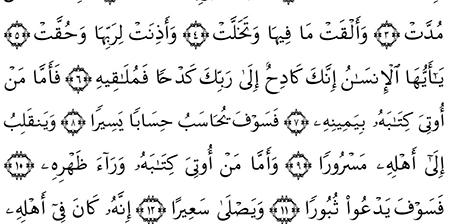 مُدَّتْ ﴿٣﴾ وَأَلْقَتْ مَا فِيهَا وَتَخَلَّتْ ﴿٤﴾ وَأَذِنَتْ لِرَبِّهَا وَحُقَّتْ ﴿٥﴾
يَـٰٓأَيُّهَا ٱلْإِنسَـٰنُ إِنَّكَ كَادِحٌ إِلَىٰ رَبِّكَ كَدْحًا فَمُلَـٰقِيهِ ﴿٦﴾ فَأَمَّا مَنْ
أُوتِىَ كِتَـٰبَهُۥ بِيَمِينِهِۦ ﴿٧﴾ فَسَوْفَ يُحَاسَبُ حِسَابًا يَسِيرًا ﴿٨﴾ وَيَنقَلِبُ
إِلَىٰٓ أَهْلِهِۦ مَسْرُورًا ﴿٩﴾ وَأَمَّا مَنْ أُوتِىَ كِتَـٰبَهُۥ وَرَآءَ ظَهْرِهِۦ ﴿١٠﴾
فَسَوْفَ يَدْعُوا۟ ثُبُورًا ﴿١١﴾ وَيَصْلَىٰ سَعِيرًا ﴿١٢﴾ إِنَّهُۥ كَانَ فِىٓ أَهْلِهِۦ